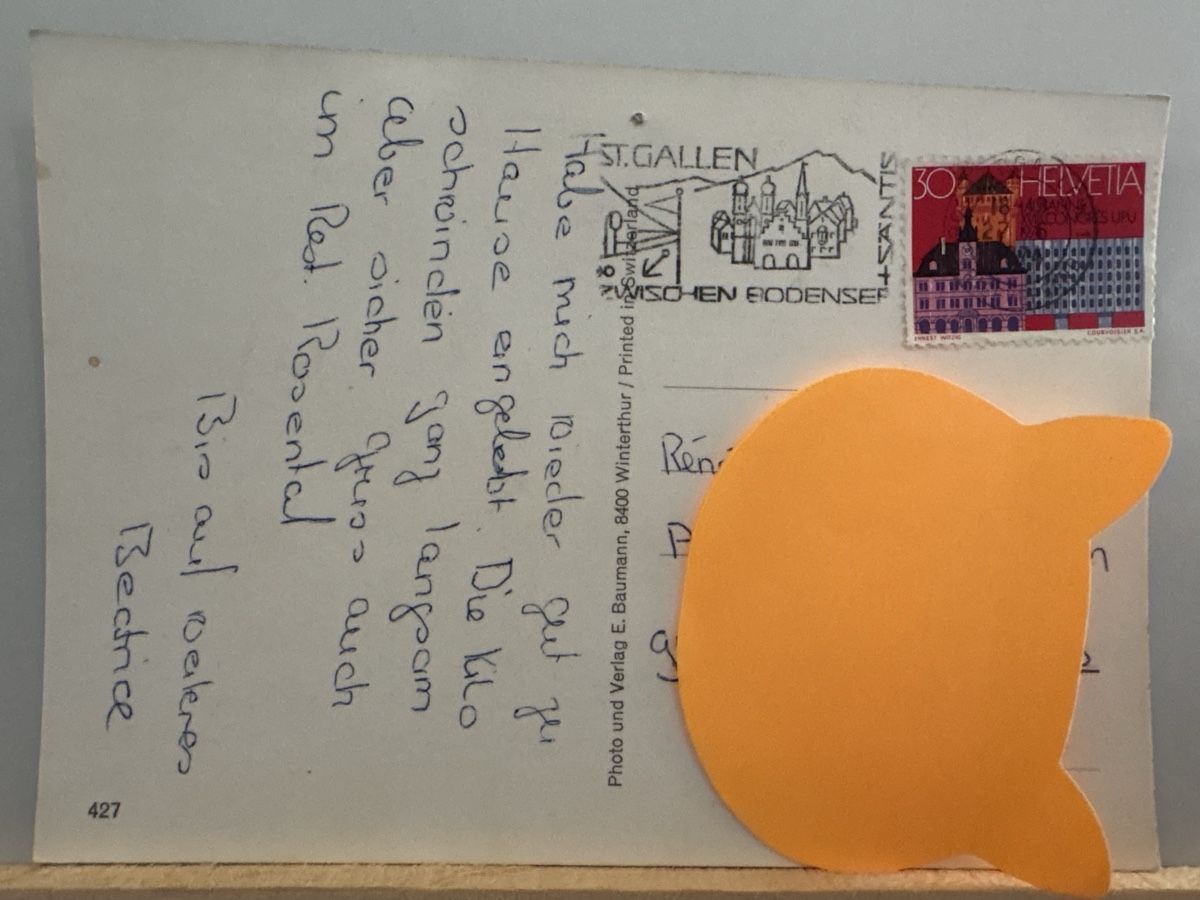 Habe mich wieder gut zu
Hause eingelebt. Die Kilo
schwinden ganz langsam
aber sicher. Gruss auch
im Rest. Rosental
Bis auf weiteres
Beatrice
427
Photo und Verlag E. Baumann, 8400 Winterthur / Printed in Switzerland
ST. GALLEN
ZWISCHEN BODENSEE
+ SÄNTIS
30 HELVETIA
CONGRÈS UPU
ERNEST WITZIG
COURVOISIER S.A.